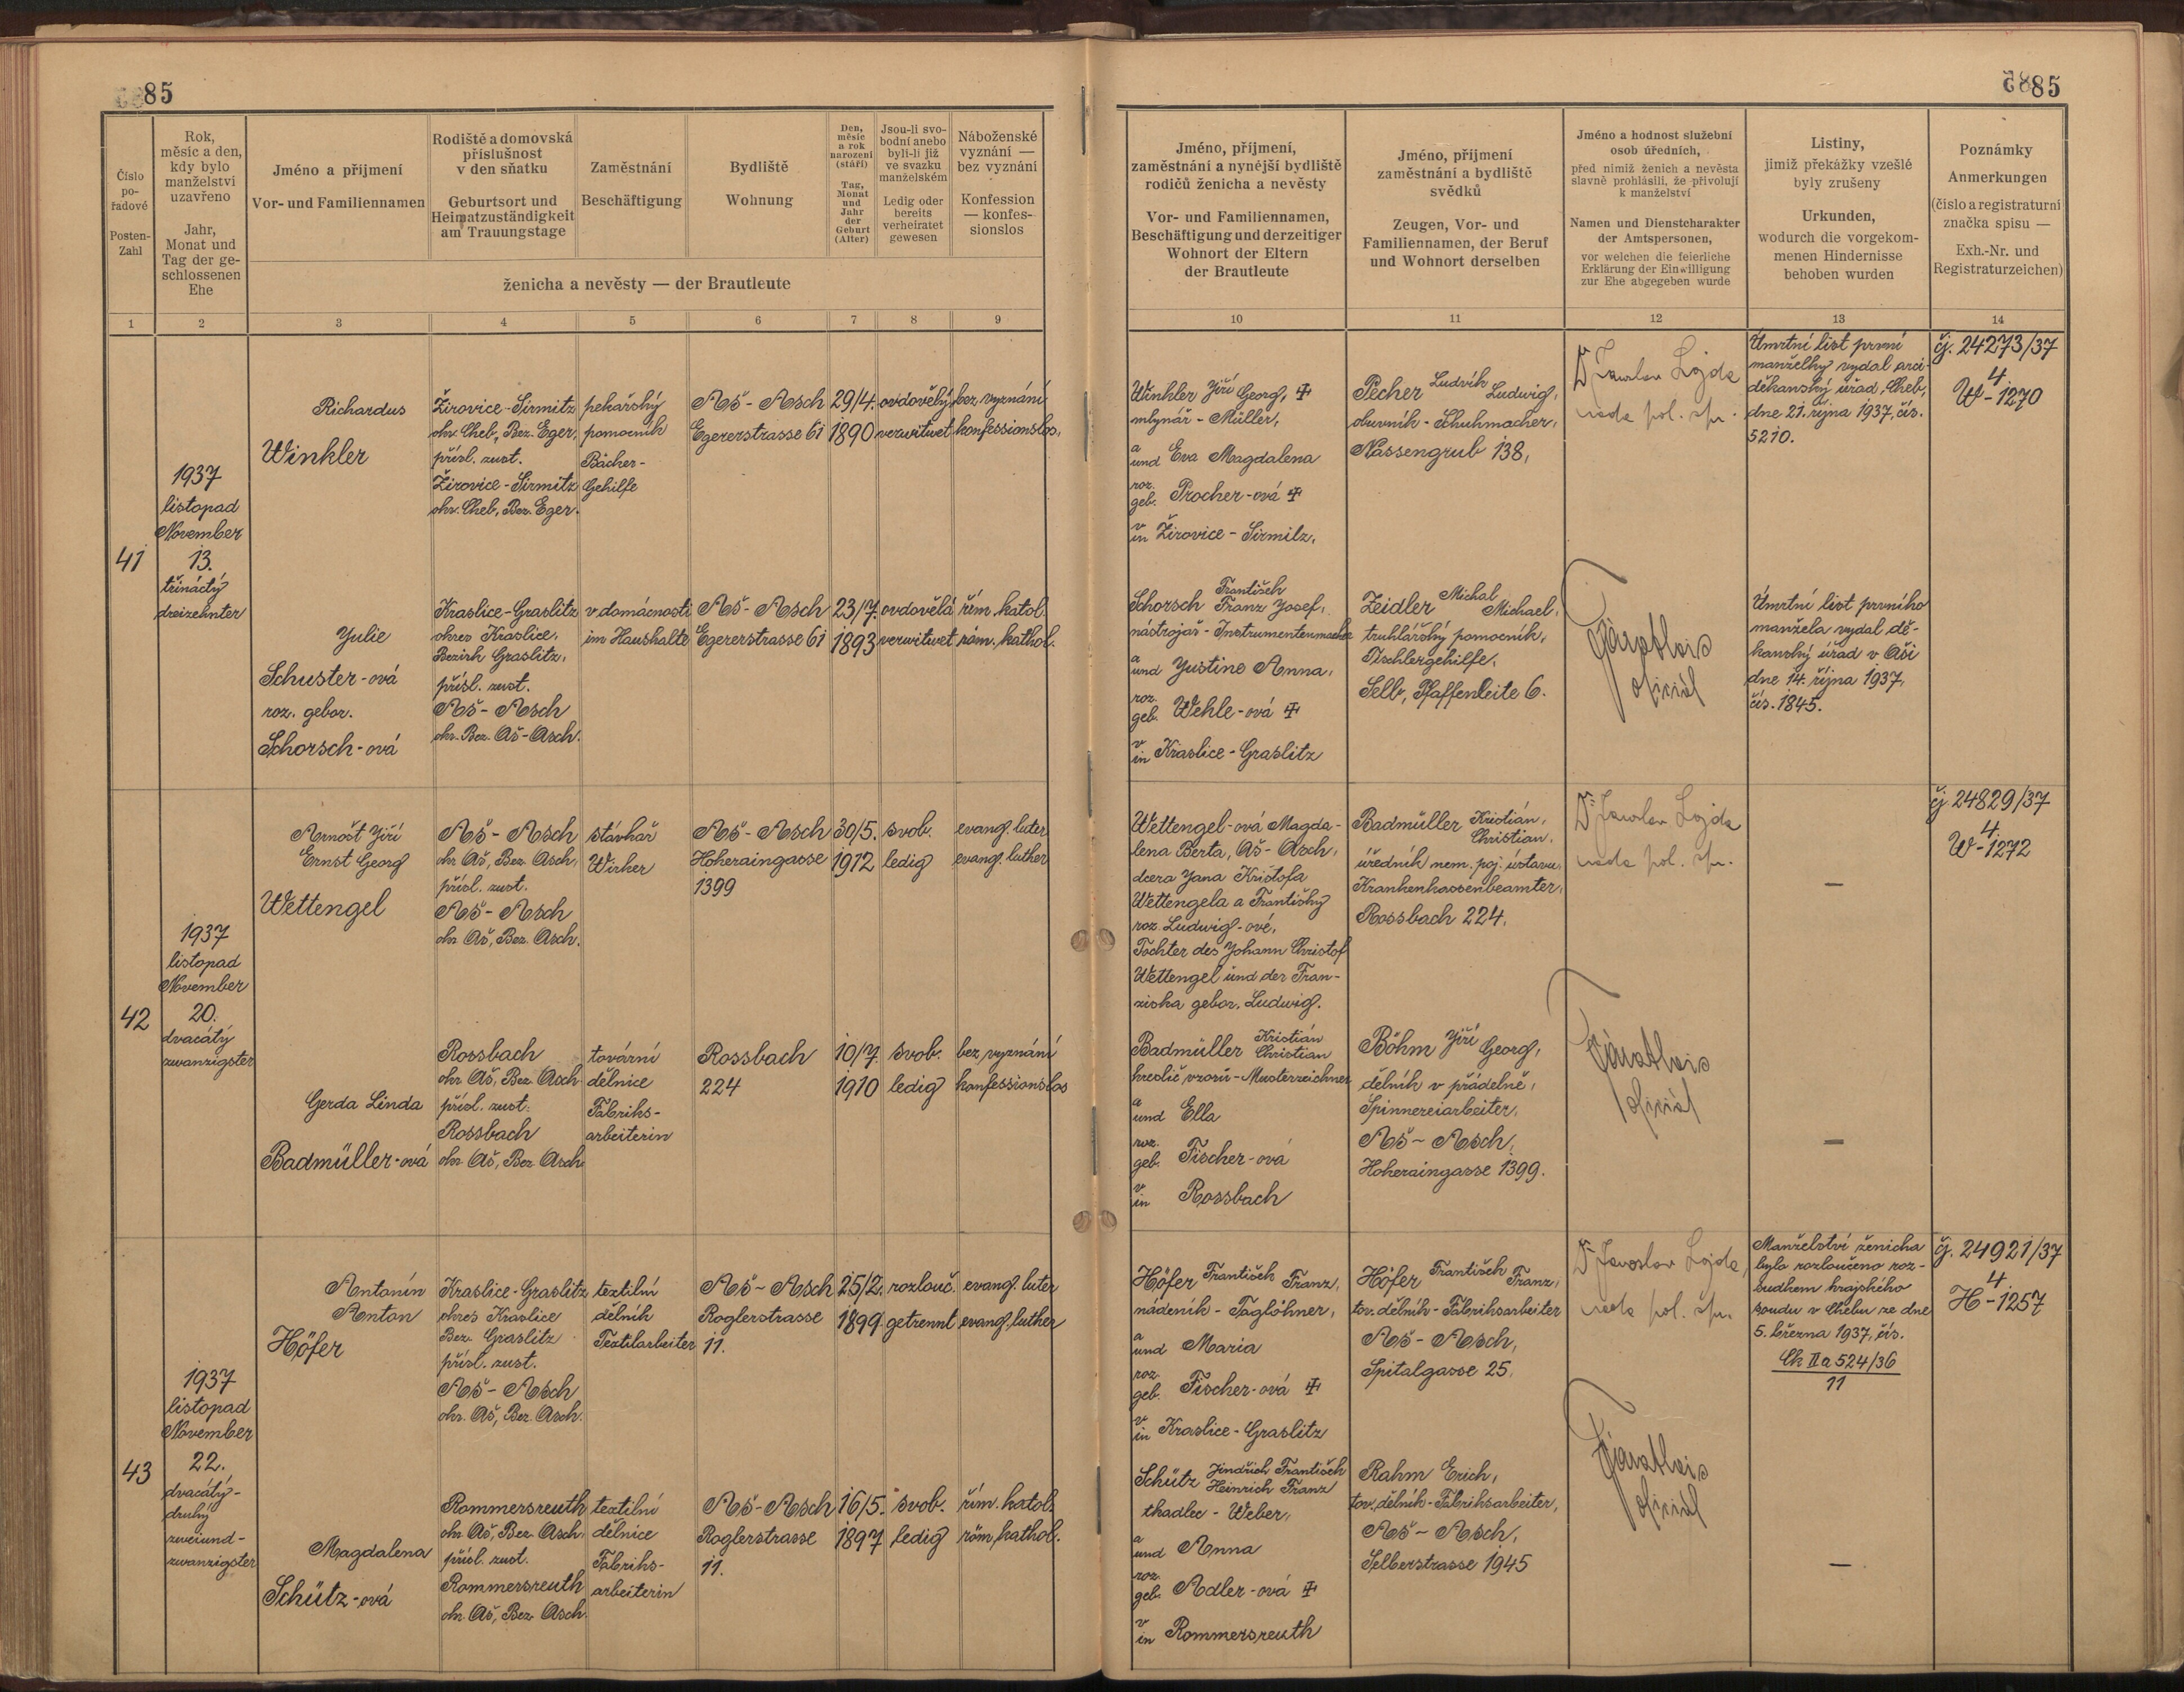 85
85
Číslo
po-
řadové
Posten-
Zahl
Rok,
měsíc a den,
kdy bylo
manželství
uzavřeno
Jahr,
Monat und
Tag der ge-
schlossenen
Ehe
Jméno a příjmení
Vor- und Familiennamen
Rodiště a domovská
příslušnost
v den sňatku
Geburtsort und
Heimatzuständigkeit
am Trauungstage
Zaměstnání
Beschäftigung
Bydliště
Wohnung
Den,
měsíc
a rok
narození
(stáří)
Tag,
Monat
und
Jahr
der
Geburt
(Alter)
Jsou-li svo-
bodní anebo
byli-li již
ve svazku
manželském
Ledig oder
bereits
verheiratet
gewesen
Náboženské
vyznání —
bez vyznání
Konfession
— konfes-
sionslos
ženicha a nevěsty — der Brautleute
Jméno, příjmení,
zaměstnání a nynější bydliště
rodičů ženicha a nevěsty
Vor- und Familiennamen,
Beschäftigung und derzeitiger
Wohnort der Eltern
der Brautleute
Jméno, příjmení
zaměstnání a bydliště
svědků
Zeugen, Vor- und
Familiennamen, der Beruf
und Wohnort derselben
Jméno a hodnost služební
osob úředních,
před nimiž ženich a nevěsta
slavně prohlásili, že přivolují
k manželství
Namen und Dienstcharakter
der Amtspersonen,
vor welchen die feierliche
Erklärung der Einwilligung
zur Ehe abgegeben wurde
Listiny,
jimiž překážky vzešlé
byly zrušeny
Urkunden,
wodurch die vorgekom-
menen Hindernisse
behoben wurden
Poznámky
Anmerkungen
(číslo a registraturní
značka spisu —
Exh.-Nr. und
Registraturzeichen)
1 2 3 4 5 6 7 8 9 10 11 12 13 14
41
1937
listopad
November
13.
třináctý
dreizehnter
Richardus
Winkler
Žirovice-Sirmitz
okr. Cheb, Bez. Eger,
přísl. zust.
Žirovice-Sirmitz
okr. Cheb, Bez. Eger.
pekařský
pomocník
Bäcker-
Gehilfe
Aš - Asch
Egererstrasse 61
29/4.
1890
ovdovělý
verwitwet
bez vyznání
konfessionslos,
Winkler Jiří Georg, ✝
mlynář - Müller,
a
und Eva Magdalena
roz.
geb. Procher-ová ✝
v
in Žirovice - Sirmitz,
Pecher Ludvík Ludwig,
obuvník - Schuhmacher,
Nassengrub 138,
Dr Jaroslav Lojda
rada pol. spr.
Úmrtní list první
manželky vydal arci-
děkanský úřad, Cheb,
dne 21. října 1937, čís.
5210.
čj. 24273/37
4
W-1270
Julie
Schuster-ová
roz. gebor.
Schorsch-ová
Kraslice-Graslitz
okres Kraslice,
Bezirk Graslitz,
přísl. zust.
Aš - Asch
okr. Bez. Aš-Asch.
v domácnosti
im Haushalte
Aš - Asch
Egererstrasse 61
23/7.
1893
ovdovělá
verwitwet
řím. katol.
röm. kathol.
Schorsch František Franz Josef,
nástrojař - Instrumentenmacher
a
und Justine Anna,
roz.
geb. Wehle-ová ✝
v
in Kraslice - Graslitz
Zeidler Michal Michael,
truhlářský pomocník,
Tischlergehilfe,
Selb, Pfaffenleite 6.
oficiál
Úmrtní list prvního
manžela vydal dě-
kanský úřad v Aši
dne 14. října 1937,
čís. 1845.
42
1937
listopad
November
20.
dvacátý
zwanzigster
Arnošt Jiří
Ernst Georg
Wettengel
Aš - Asch
okr. Aš, Bez. Asch,
přísl. zust.
Aš - Asch
okr. Aš, Bez. Asch.
stávkař
Wirker
Aš - Asch
Hoheraingasse
1399
30/5.
1912
svob.
ledig
evang. luter
evang. luther
Wettengel-ová Magda-
lena Berta, Aš - Asch,
dcera Jana Kristofa
Wettengela a Františky
roz. Ludwig-ové,
Tochter des Johann Christof
Wettengel und der Fran-
ziska gebor. Ludwig.
Badmüller Kristián,
Christian,
úředník nem. poj. ústavu,
Krankenkassenbeamter,
Rossbach 224.
Dr Jaroslav Lojda
rada pol. spr.
—
čj 24829/37
4
W-1272
Gerda Linda
Badmüller-ová
Rossbach
okr. Aš, Bez. Asch
přísl. zust.
Rossbach
okr. Aš, Bez. Asch.
tovární
dělnice
Fabriks-
arbeiterin
Rossbach
224
10/7.
1910
svob.
ledig
bez vyznání
konfessionslos
Badmüller Kristián
Christian
kreslič vzorů - Musterzeichner
a
und Ella
roz.
geb. Fischer-ová
v
in Rossbach
Böhm Jiří Georg,
dělník v přádelně,
Spinnereiarbeiter,
Aš - Asch,
Hoheraingasse 1399.
oficiál
—
43
1937
listopad
November
22.
dvacátý-
druhý
zweiund-
zwanzigster
Antonín
Anton
Höfer
Kraslice-Graslitz
okres Kraslice
Bez. Graslitz
přísl. zust.
Aš - Asch
okr. Aš, Bez. Asch.
textilní
dělník
Textilarbeiter
Aš - Asch
Roglerstrasse
11.
25/2.
1899
rozlouč.
getrennt
evang. luter
evang. luther
Höfer František Franz,
nádeník - Taglöhner,
a
und Maria
roz.
geb. Fischer-ová ✝
v
in Kraslice - Graslitz
Höfer František Franz,
tov. dělník - Fabriksarbeiter
Aš - Asch,
Spitalgasse 25.
Dr Jaroslav Lojda,
rada pol. spr.
Manželství ženicha
bylo rozloučeno roz-
sudkem krajského
soudu v Chebu ze dne
5. března 1937, čís.
Ck IIa 524/36
11
čj. 24921/37
4
H-1257
Magdalena
Schütz-ová
Rommersreuth
okr. Aš, Bez. Asch,
přísl. zust.
Rommersreuth
okr. Aš, Bez. Asch.
textilní
dělnice
Fabriks-
arbeiterin
Aš - Asch
Roglerstrasse
11.
16/5.
1897
svob.
ledig
řím. katol.
röm. kathol.
Schütz Jindřich František
Heinrich Franz
tkadlec - Weber,
a
und Anna
roz.
geb. Adler-ová ✝
v
in Rommersreuth
Rahm Erich,
tov. dělník - Fabriksarbeiter,
Aš - Asch,
Selberstrasse 1945
oficiál
—